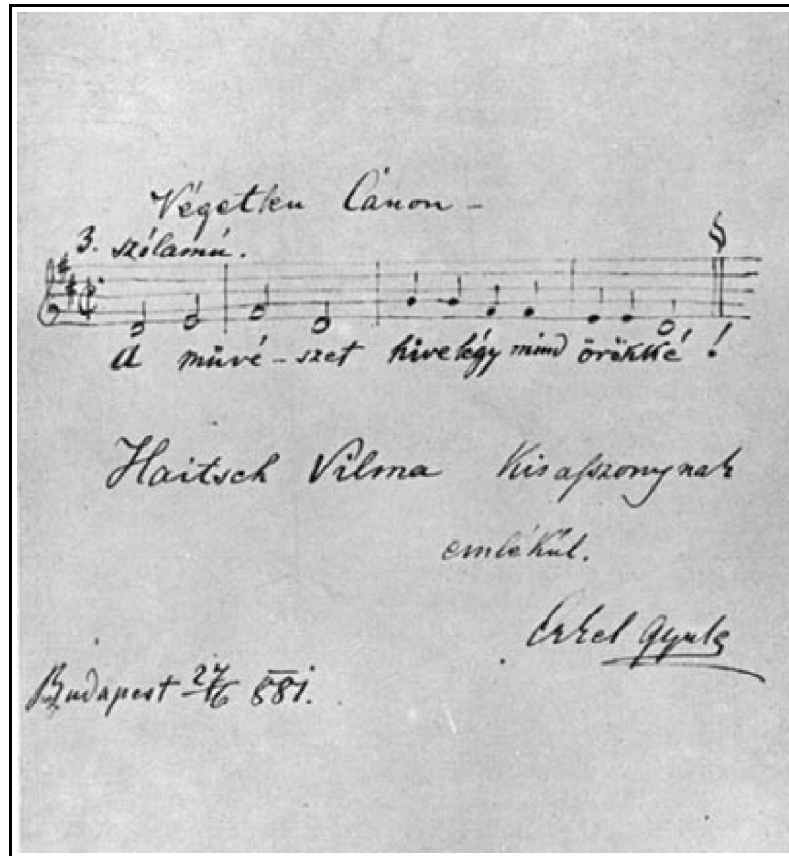 Végetlen Cánon –
3. szólamú.
A müvé – szet hive légy mind örökké !
Haitsch Vilma Kisaſszonynak
emlékül.
Erkel Gyula
Budapest 27/6 881.